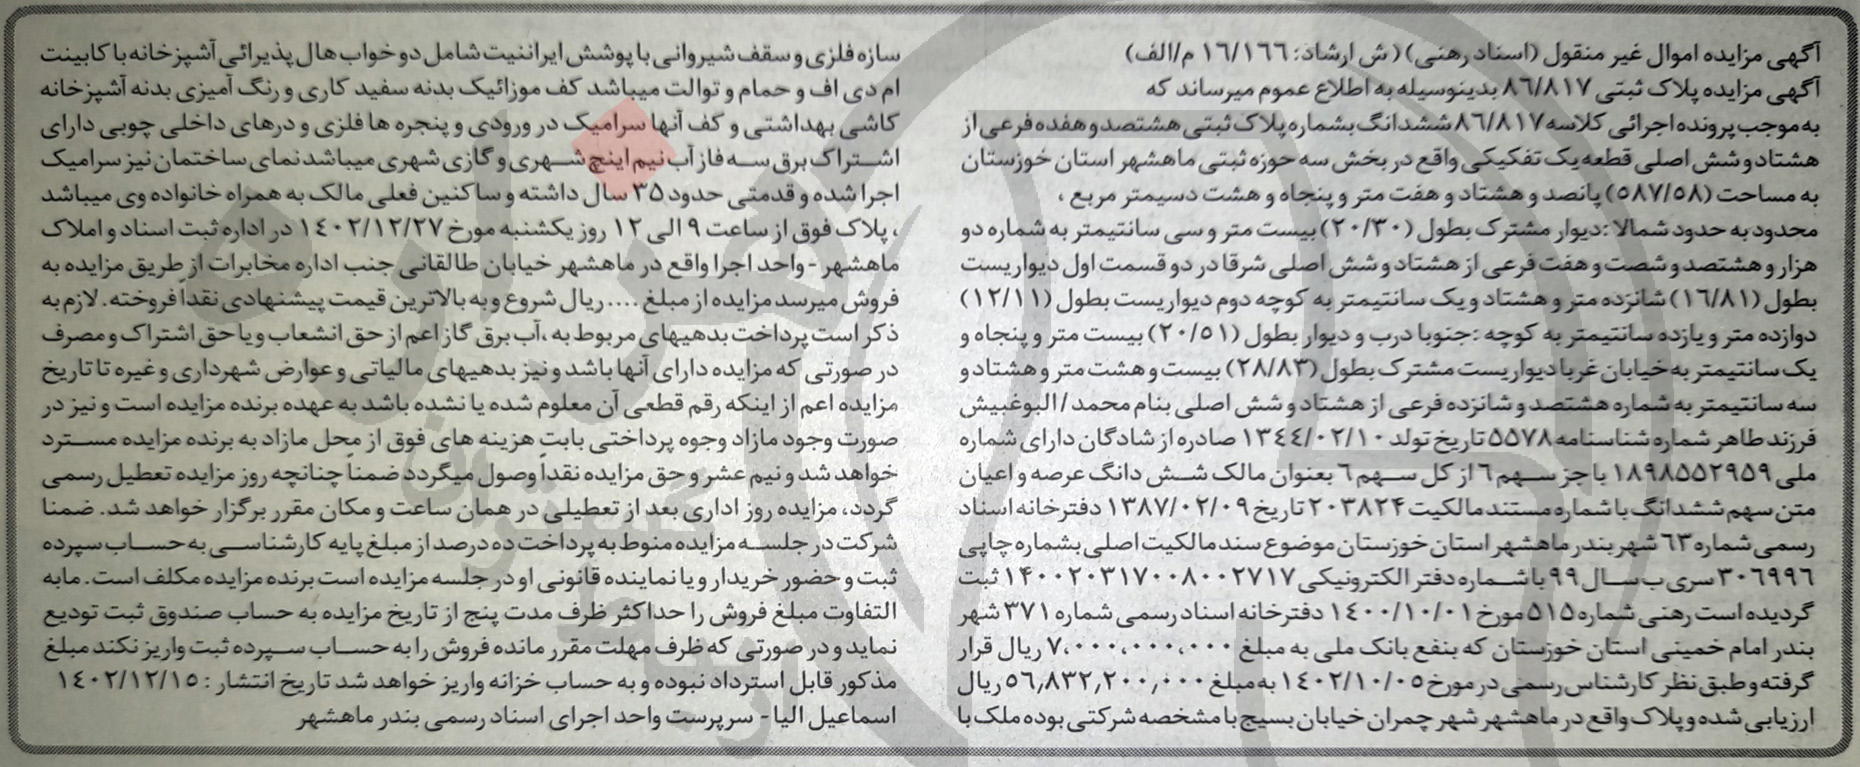 آگهی مزایده اموال غیر منقول (اسناد رهنی) ( ش ارشاد: ١٦/١٦٦ م/الف)
آگهی مزایده پلاک ثبتی ٨٦/٨١٧ بدینوسیله به اطلاع عموم میرساند که
به موجب پرونده اجرائی کلاسه ٨٦/٨١٧ ششدانگ بشماره پلاک ثبتی هشتصد و هفده فرعی از
هشتاد و شش اصلی قطعه یک تفکیکی واقع در بخش سه حوزه ثبتی ماهشهر استان خوزستان
به مساحت (٥٨٧/٥٨) پانصد و هشتاد و هفت متر و پنجاه و هشت دسیمتر مربع ،
محدود به حدود شمالا :دیوار مشترک بطول (٢٠/٣٠) بیست متر و سی سانتیمتر به شماره دو
هزار و هشتصد و شصت و هفت فرعی از هشتاد و شش اصلی شرقا در دو قسمت اول دیواریست
بطول (١٦/٨١) شانزده متر و هشتاد و یک سانتیمتر به کوچه دوم دیواریست بطول (١٢/١١)
دوازده متر و یازده سانتیمتر به کوچه :جنوبا درب و دیوار بطول (٢٠/٥١) بیست متر و پنجاه و
یک سانتیمتر به خیابان غربا دیواریست مشترک بطول (٢٨/٨٣) بیست و هشت متر و هشتاد و
سه سانتیمتر به شماره هشتصد و شانزده فرعی از هشتاد و شش اصلی بنام محمد / البوغبیش
فرزند طاهر شماره شناسنامه ٥٥٧٨ تاریخ تولد ١٣٤٤/٠٢/١٠ صادره از شادگان دارای شماره
ملی ١٨٩٨٥٥٢٩٥٩ با جز سهم ٦ از کل سهم ٦ بعنوان مالک شش دانگ عرصه و اعیان
متن سهم ششدانگ با شماره مستند مالکیت ٢٠٣٨٢۴ تاریخ ١٣٨٧/٠٢/٠٩ دفترخانه اسناد
رسمی شماره ٦٣ شهر بندر ماهشهر استان خوزستان موضوع سند مالکیت اصلی بشماره چاپی
٣٠٦٩٩٦ سری ب سال ٩٩ با شماره دفتر الکترونیکی ١۴٠٠٢٠٣١٧٠٠٨٠٠٢٧١٧ ثبت
گردیده است رهنی شماره ٥١٥ مورخ ١٤٠٠/١٠/٠١ دفترخانه اسناد رسمی شماره ٣٧١ شهر
بندر امام خمینی استان خوزستان که بنفع بانک ملی به مبلغ ٧،٠٠٠،٠٠٠،٠٠٠ ریال قرار
گرفته و طبق نظر کارشناس رسمی در مورخ ١٤٠٢/١٠/٠٥ به مبلغ ٥٦,٨٣٢,٢٠٠,٠٠٠ ریال
ارزیابی شده و پلاک واقع در ماهشهر شهر چمران خیابان بسیج با مشخصه شرکتی بوده ملک با
سازه فلزی و سقف شیروانی با پوشش ایرانیت شامل دو خواب هال پذیرائی آشپزخانه با کابینت
ام دی اف و حمام و توالت میباشد کف موزائیک بدنه سفید کاری و رنگ آمیزی بدنه آشپزخانه
کاشی بهداشتی و کف آنها سرامیک در ورودی و پنجره ها فلزی و درهای داخلی چوبی دارای
اشتراک برق سه فاز آب نیم اینچ شهری و گازی شهری میباشد نمای ساختمان نیز سرامیک
اجرا شده و قدمتی حدود ٣٥ سال داشته و ساکنین فعلی مالک به همراه خانواده وی میباشد
، پلاک فوق از ساعت ٩ الی ١٢ روز یکشنبه مورخ ١٤٠٢/١٢/٢٧ در اداره ثبت اسناد و املاک
ماهشهر - واحد اجرا واقع در ماهشهر خیابان طالقانی جنب اداره مخابرات از طریق مزایده به
فروش میرسد مزایده از مبلغ .... ریال شروع و به بالاترین قیمت پیشنهادی نقداً فروخته . لازم به
ذکر است پرداخت بدهیهای مربوط به ،آب برق گاز اعم از حق انشعاب و یا حق اشتراک و مصرف
در صورتی که مزایده دارای آنها باشد و نیز بدهیهای مالیاتی و عوارض شهرداری و غیره تا تاریخ
مزایده اعم از اینکه رقم قطعی آن معلوم شده یا نشده باشد به عهده برنده مزایده است و نیز در
صورت وجود مازاد وجوه پرداختی بابت هزینه های فوق از محل مازاد به برنده مزایده مسترد
خواهد شد و نیم عشر و حق مزایده نقداً وصول میگردد ضمناً چنانچه روز مزایده تعطیل رسمی
گردد، مزایده روز اداری بعد از تعطیلی در همان ساعت و مکان مقرر برگزار خواهد شد. ضمنا
شرکت در جلسه مزایده منوط به پرداخت ده درصد از مبلغ پایه کارشناسی به حساب سپرده
ثبت و حضور خریدار و یا نماینده قانونی او در جلسه مزایده است برنده مزایده مکلف است. مابه
التفاوت مبلغ فروش را حداکثر ظرف مدت پنج از تاریخ مزایده به حساب صندوق ثبت تودیع
نماید و در صورتی که ظرف مهلت مقرر مانده فروش را به حساب سپرده ثبت واریز نکند مبلغ
مذکور قابل استرداد نبوده و به حساب خزانه واریز خواهد شد تاریخ انتشار : ١٤٠٢/١٢/١٥
اسماعیل الیا - سرپرست واحد اجرای اسناد رسمی بندر ماهشهر